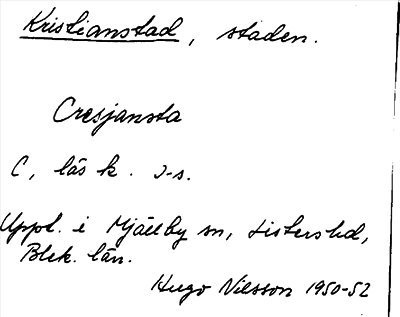 Kristianstad, staden.
Cresjansta
C, läs k. J-s.
Uppt. i Mjällby sn, Listers hd,
Blek. län.
Hugo Nilsson 1950-52